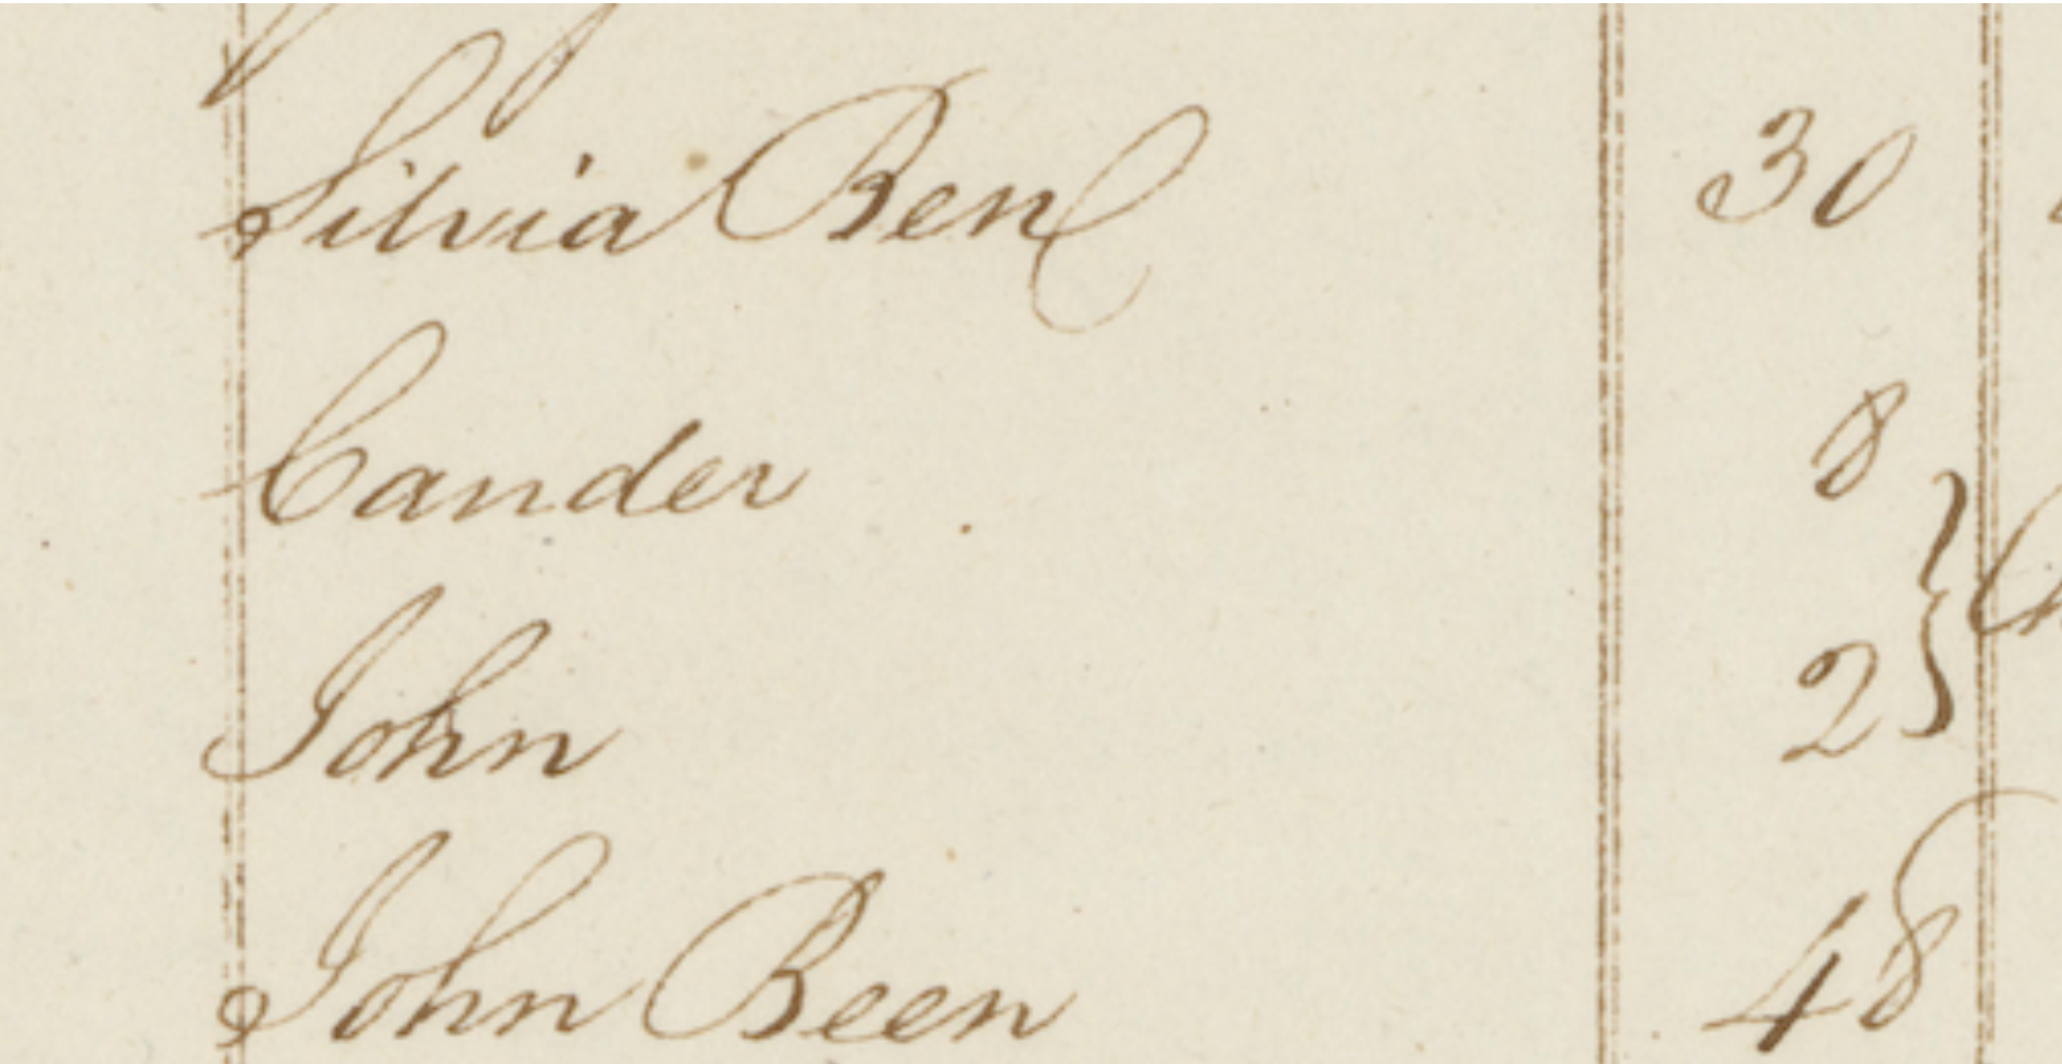 Silvia Ben 30
Cander 8
John 2
John Been 48